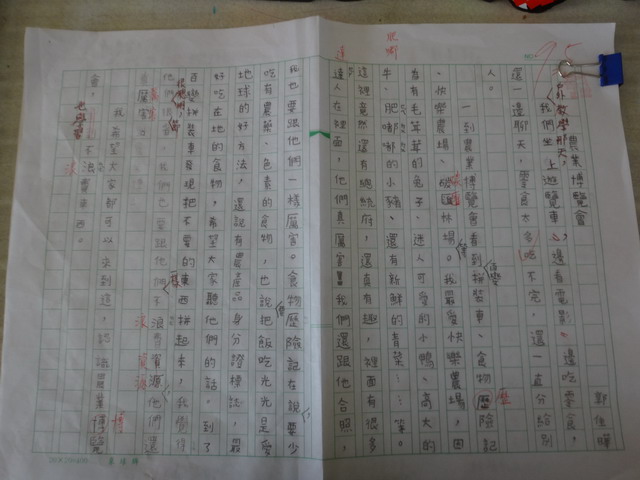 農業博覽會
郭佳曄
戶外教學那天，我們坐上遊覽車，邊看電影、邊吃零食，
還一邊聊天，零食太多吃不完，還一直分給別
人。
一到農業博覽會看到拼裝車、食物歷險記
、快樂農場。我最愛快樂農場，因
為有毛茸茸的兔子、迷人可愛的小鴨、高大的
牛、肥嘟嘟的小豬、還有新鮮的青菜……等。
這裡竟然還有總統府，還真有趣，裡面有很多
達人在裡面，他們真厲害！我們還跟他合照，
我也要跟他們一樣厲害。食物歷險記在說要少
吃有農藥、色素的食物，也說把飯吃光光是愛
地球的好方法，還說有農產品身分證標誌，最
好吃在地的食物，希望大家聽他們的話。到了
百變拼裝車發現把不要的東西拼起來，我覺得
他們很厲害，我們也要跟他們不浪費資源，他們還
厲害。
我希望大家都可以來到這，認識農業博覽
會，也學習不浪費東西。